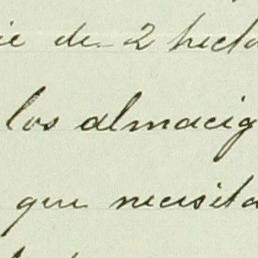 ie de 2 hecta
los almacig
que necesita